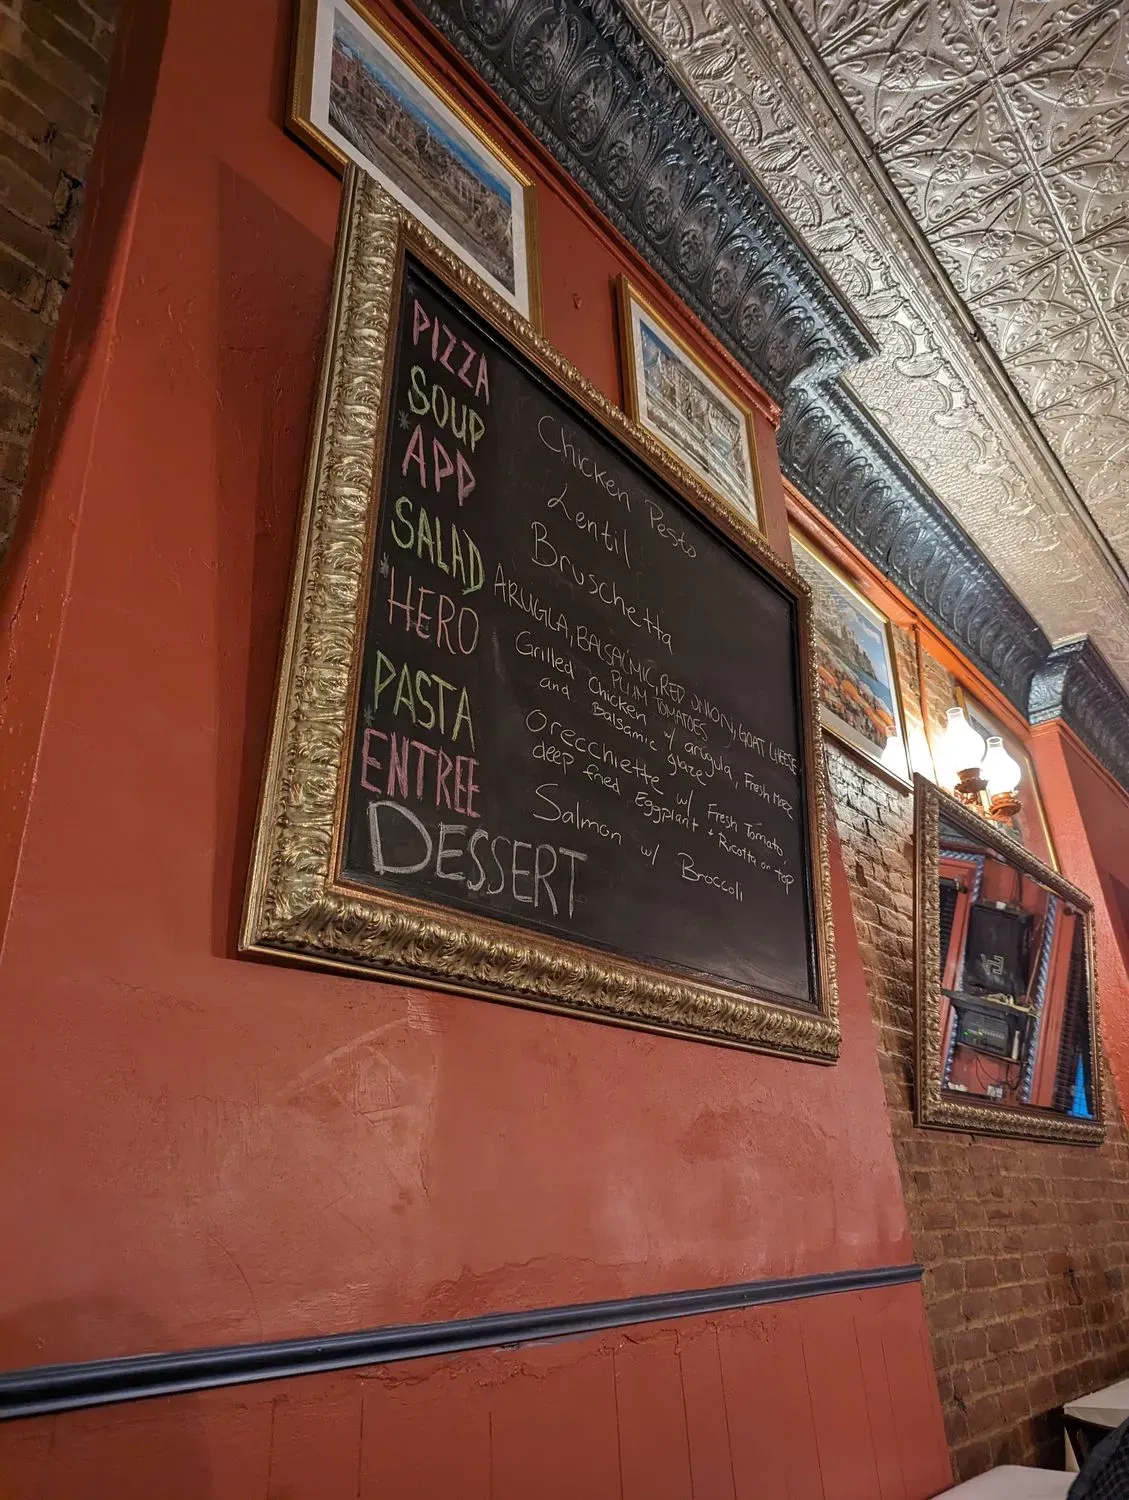 PIZZA Chicken Pesto
SOUP Lentil
*APP Bruschetta
SALAD ARUGLA, BALSALMIC, RED ONION, GOAT CHEESE
PLUM TOMATOES
*HERO Grilled Chicken w/ arugula, Fresh Mozz
and Balsamic glaze
PASTA Orecchiette w/ Fresh Tomato,
deep fried Eggplant + Ricotta on top
*ENTREE Salmon w/ Broccoli
DESSERT